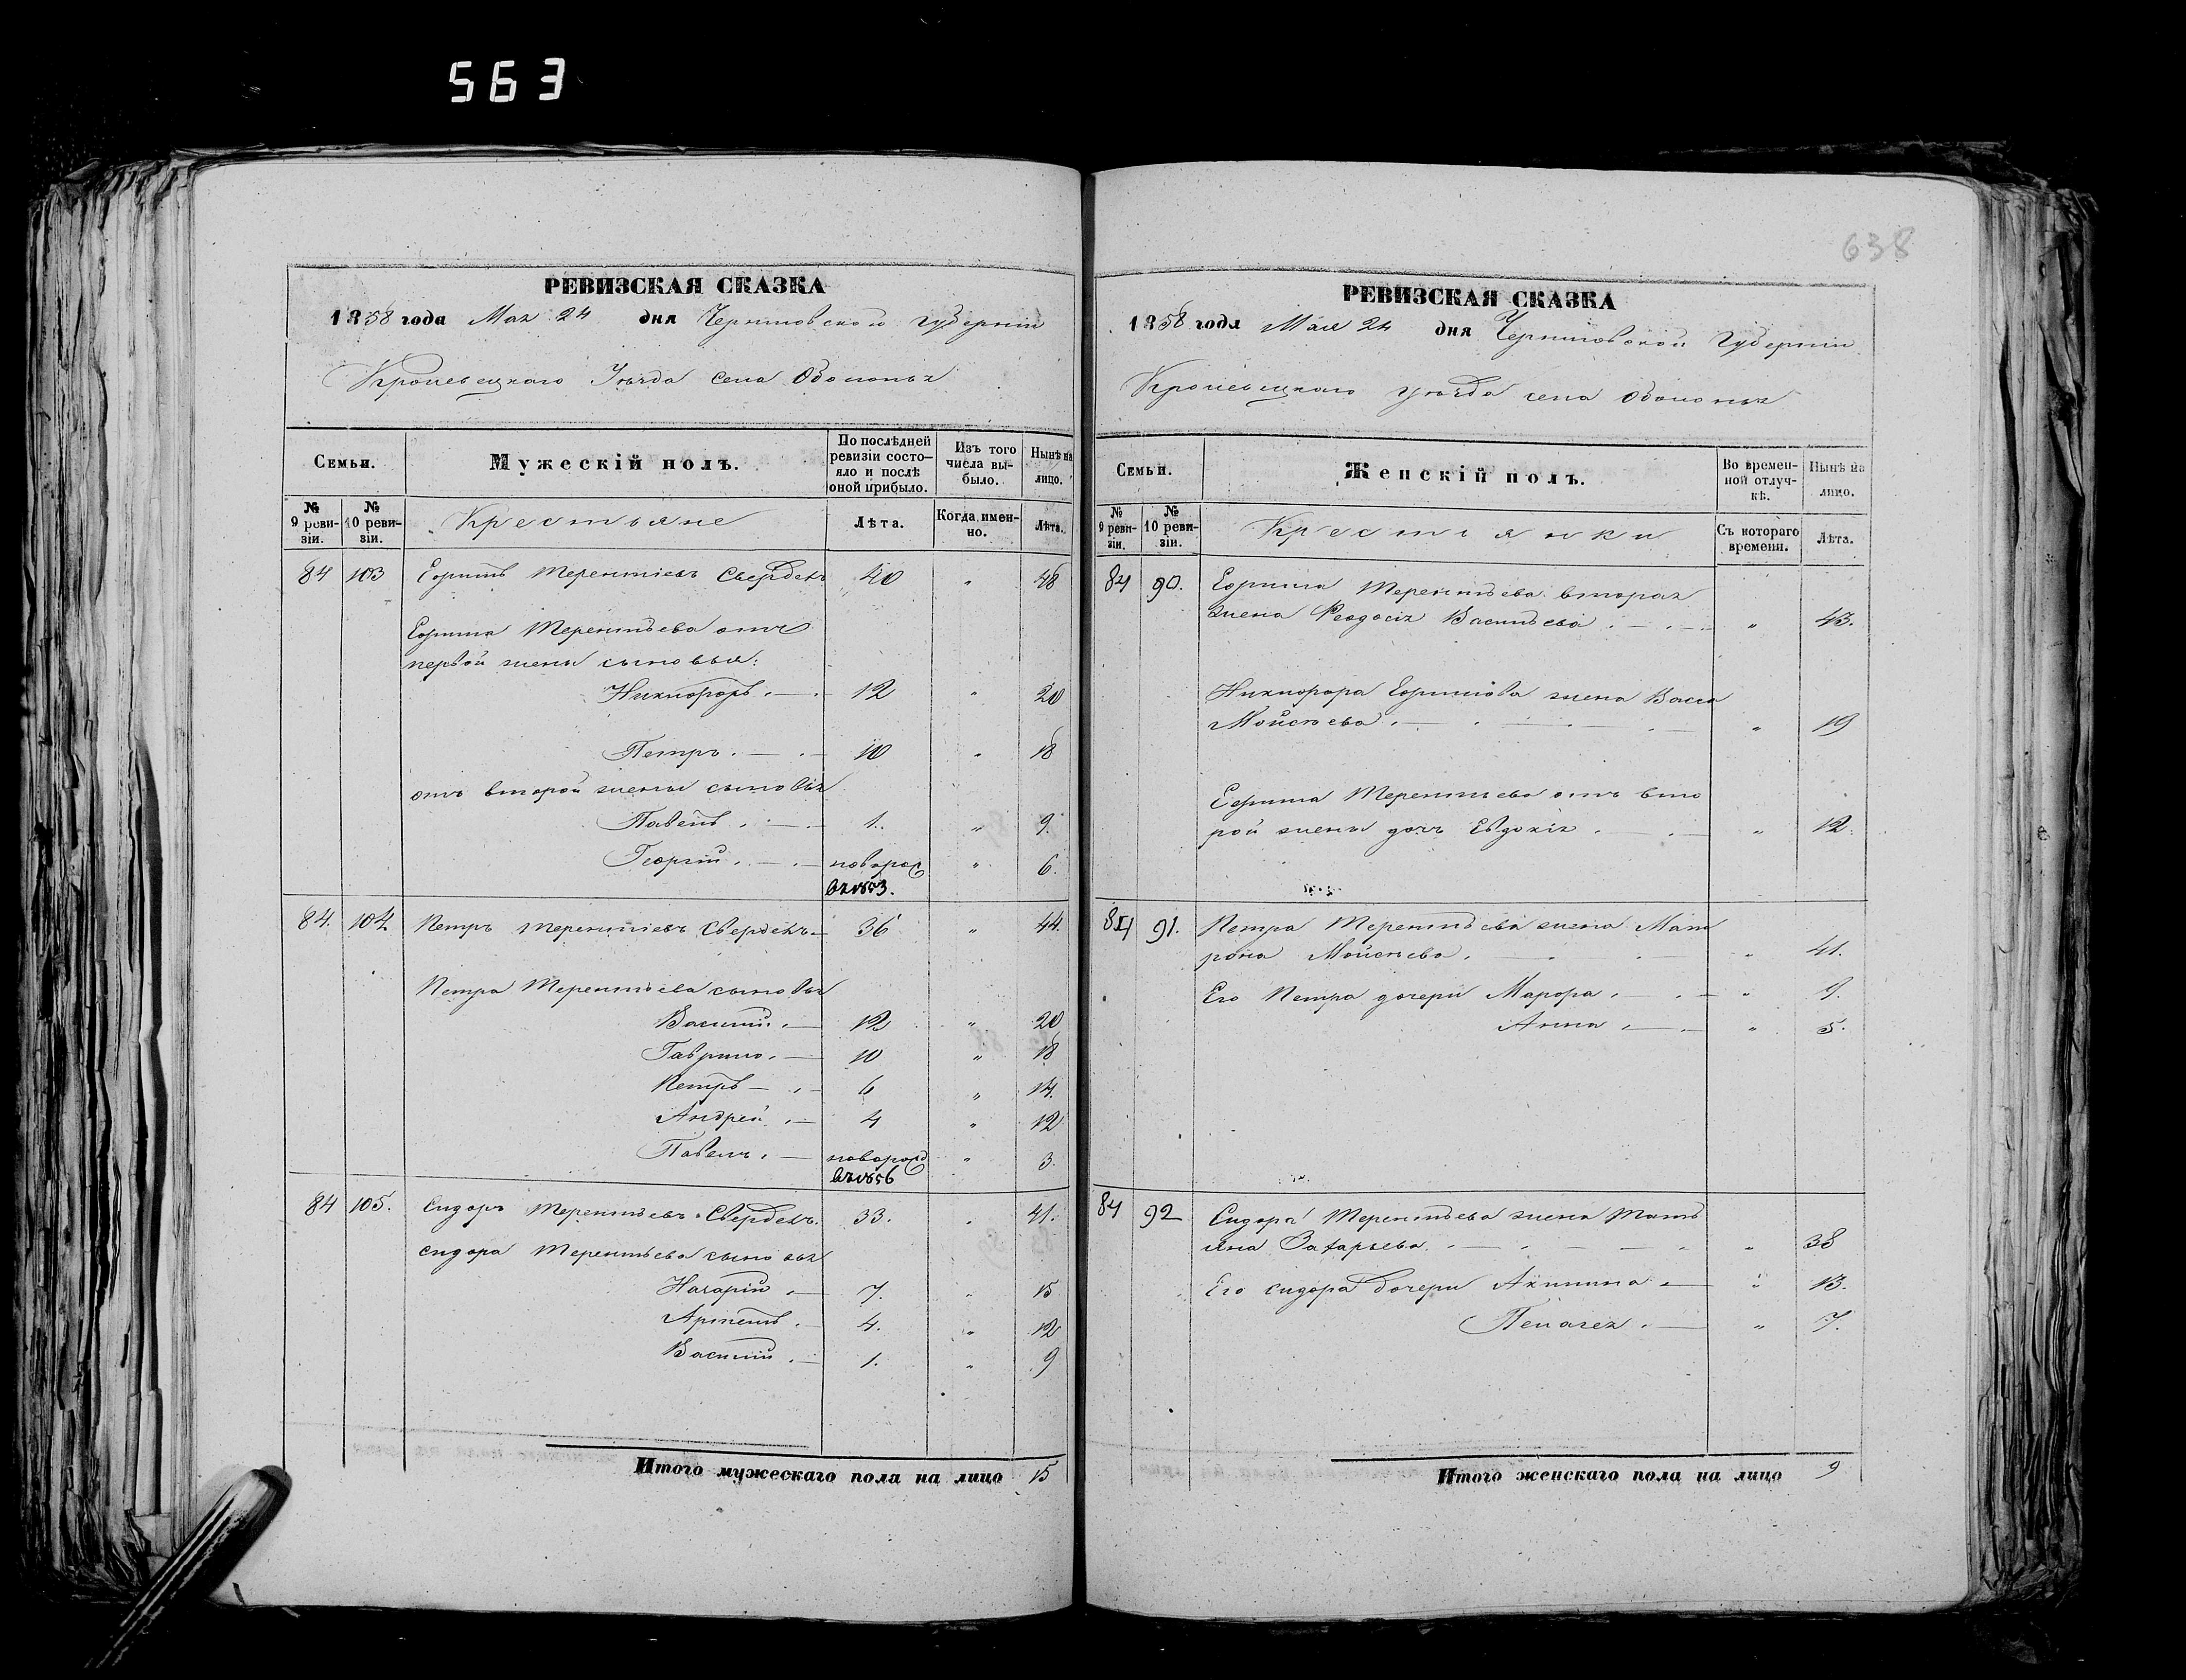 563
638
РЕВИЗСКАЯ СКАЗКА
1858 года Мая 24 дня Черниговской губерніи
Кролевецкаго Уѣзда села Оболонья
Семьи. Мужескій полъ. По послѣдней ревизіи состояло и послѣ оной прибыло. Изъ того числа выбыло. Нынѣ на лицо.
№ 9 ревизіи. № 10 ревизіи. Крестьяне Лѣта. Когда именно. Лѣта.
84 103 Терентіевъ 40 " 48
Терентьева отъ
первой жены сыновья:
Никифоръ 12 " 20
Петръ 10 " 18
отъ второй жены сыновья
Павелъ 1. " 9.
Георгій новорож " 6.
въ 1853.
84. 104 Петръ Терентіевъ 36 " 44.
Петра Терентьева сыновья
Василій 12 " 20
Гаврило 10 " 18
Петръ 6 " 14.
Андрей 4 " 12
Павелъ новорожд " 3.
въ 1856
84 105. Сидоръ Терентьевъ 33. " 41.
Сидора Терентьева сыновья
Назарій 7. " 15
Артемъ 4. " 12
Василій 1. " 9
Итого мужескаго пола на лицо 15
РЕВИЗСКАЯ СКАЗКА
1858 года Мая 24 дня Черниговской Губерніи
Кролевецкаго уѣзда села Оболонья
Семьи. Женскій полъ. Во временной отлучкѣ. Нынѣ на лицо.
№ 9 ревизіи. № 10 ревизіи. Крестьянки Съ котораго времени. Лѣта.
84 90. Терентьева вторая
жена Феодосія Васильева " 43.
Никифора жена Васса
Мойсѣева " 19
Терентьева отъ вто
рой жены дочь Евдокія " 12.
84 91. Петра Терентьева жена Мат
рона Мойсѣева " 41.
Его Петра дочери Марфа " 9.
Анна " 5.
84 92 Сидора Терентьева жена Тать
яна Захарьева " 38
Его Сидора дочери Акилина " 13.
Пелагея " 7.
Итого женскаго пола на лицо 9